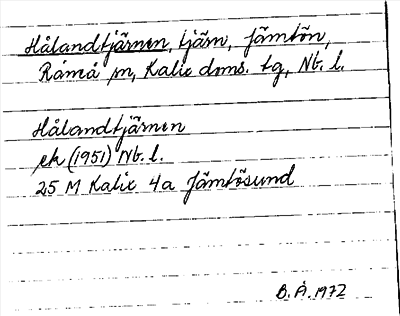 Hålandtjärnen, tjärn, Jämtön,
Råneå sn, Kalix doms. tg, Nb. l.
Hålandtjärnen
ek (1951) Nb. l.
25 M Kalix 4a Jämtösund
B. Å. 1972